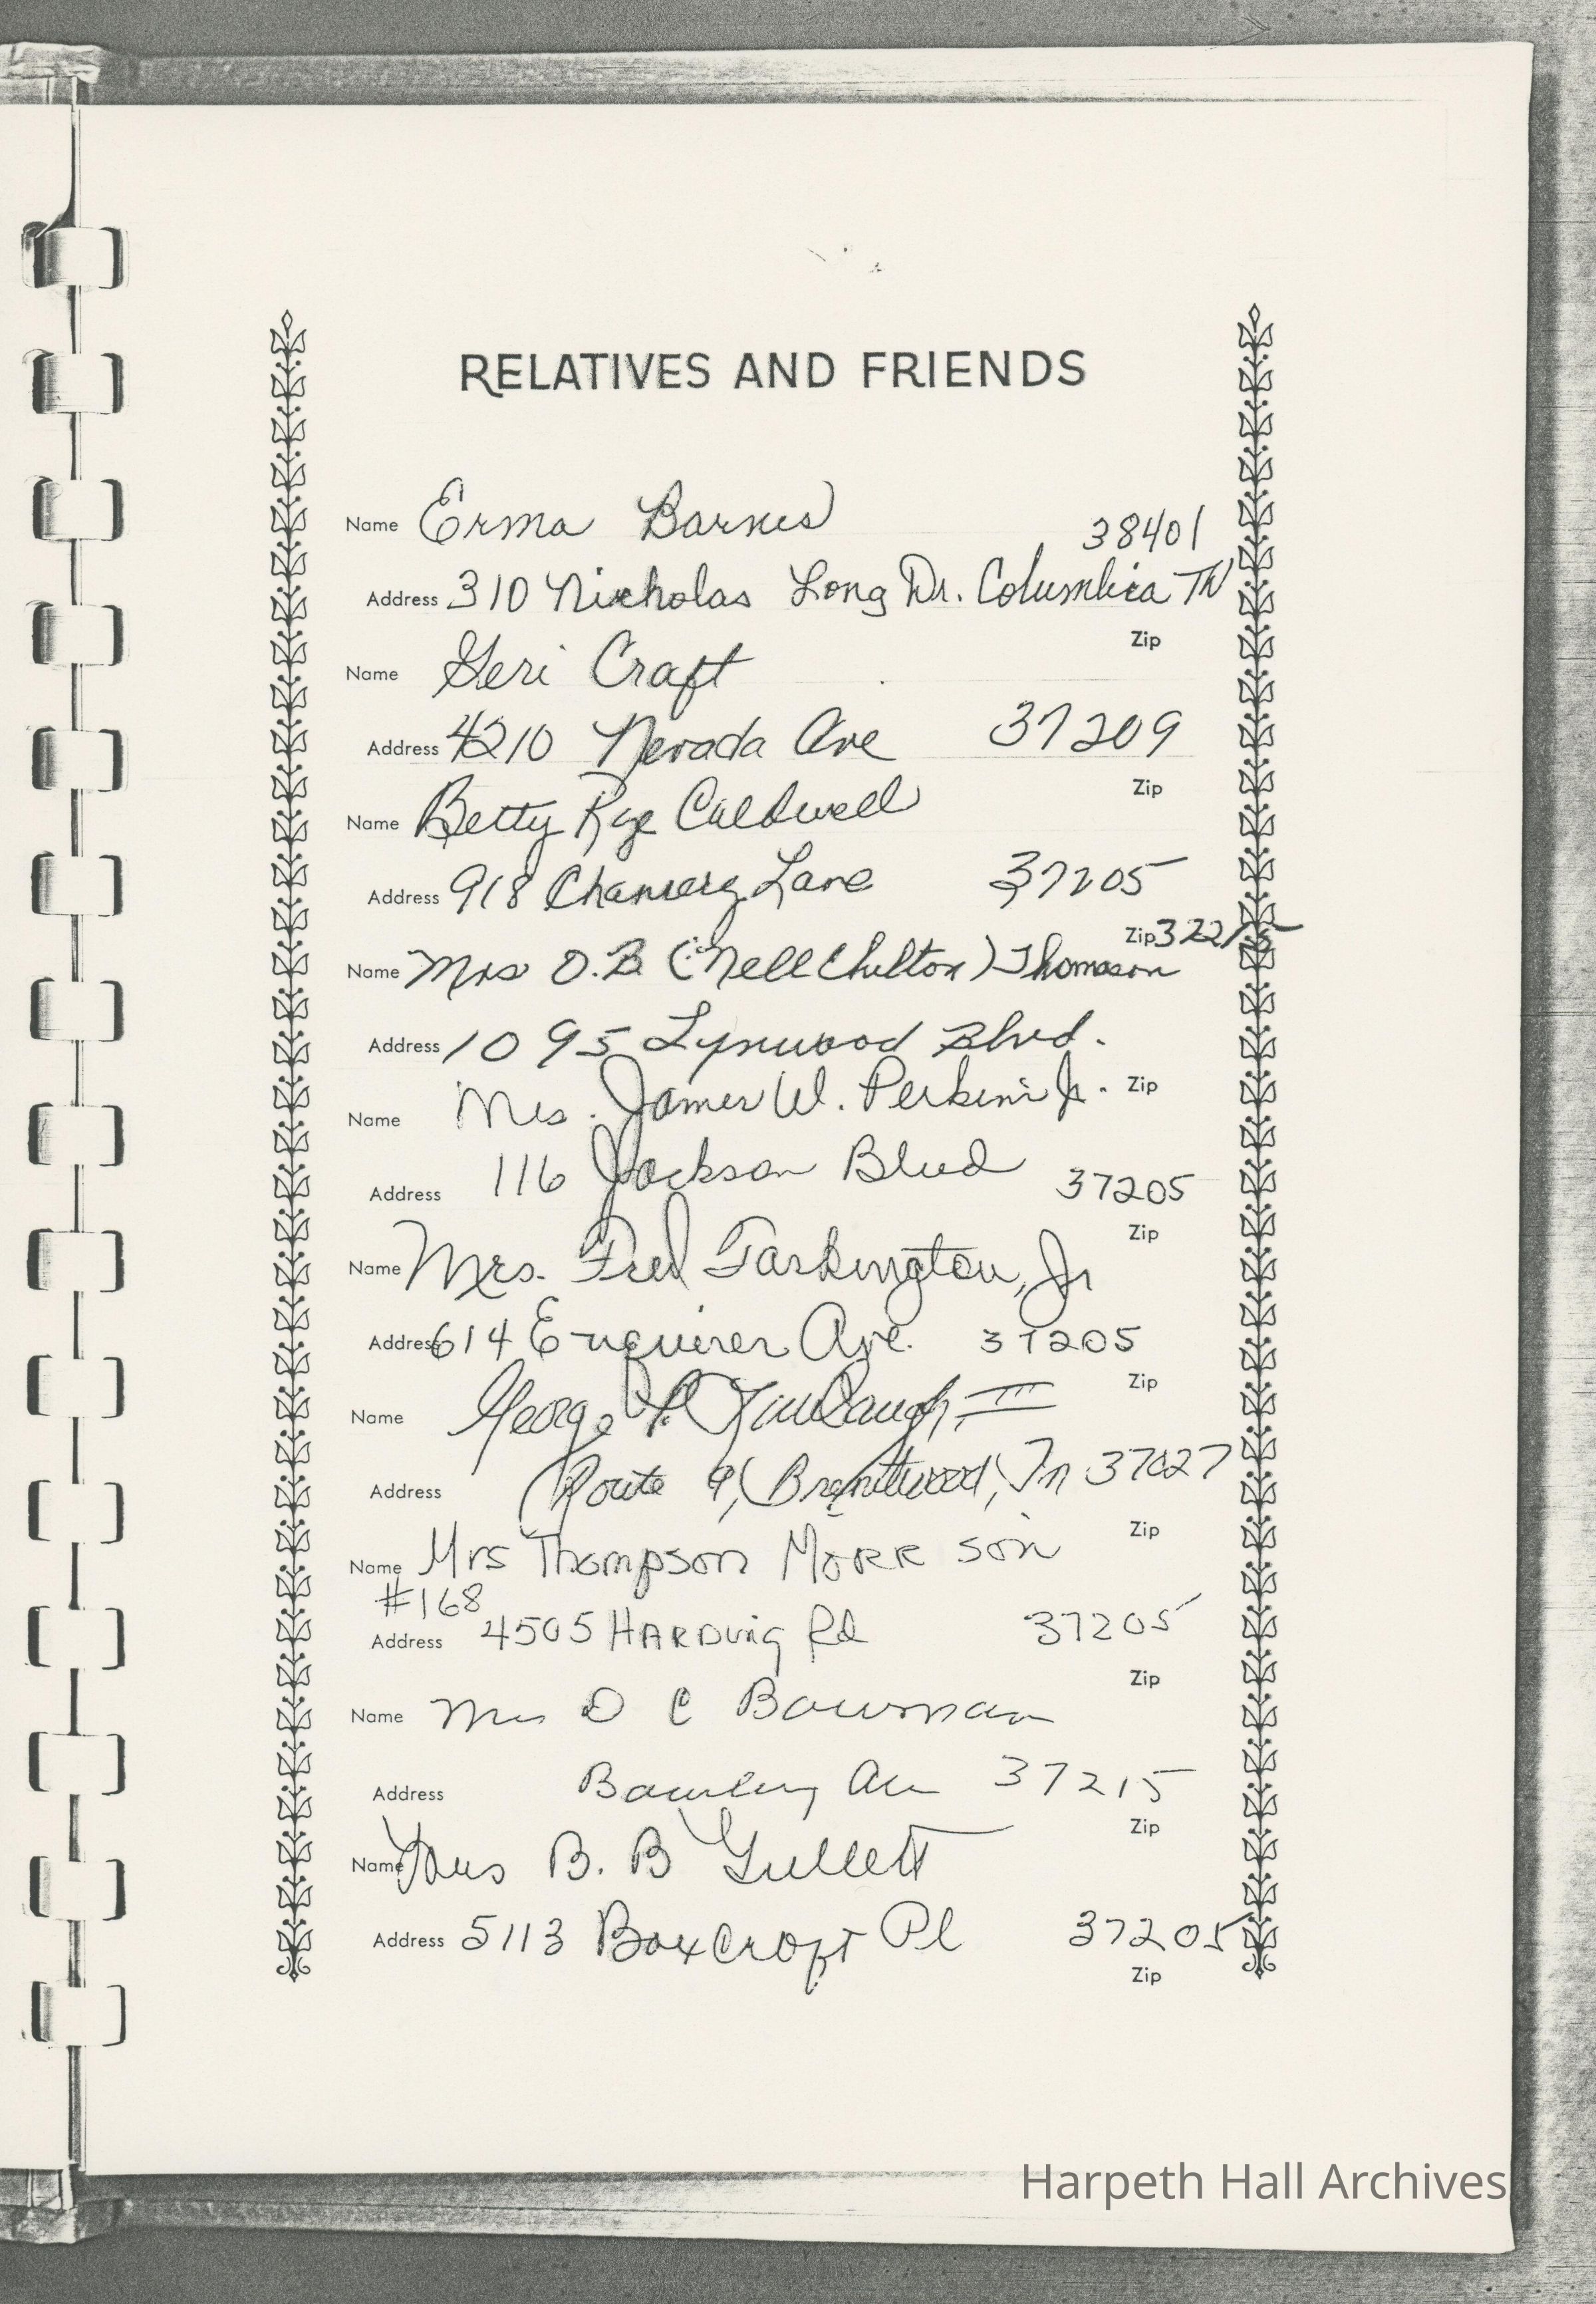 RELATIVES AND FRIENDS
Name Erma Barnes
38401
Address 310 Nicholas Long Dr. Columbia TN
Zip
Name Geri Craft
Address 4210 Nevada Ave 37209
Zip
Name Betty Rye Caldwell
Address 918 Chancery Lane 37205
Zip 37215
Name Mrs O.B. (Nell Chilton) Thomason
Address 1095 Lynwood Blvd.
Zip
Name Mrs. James W. Perkins Jr.
Address 116 Jackson Blvd 37205
Zip
Name Mrs. Fred Tarkington, Jr
Address 614 Enquirer Ave. 37205
Zip
Name George P. III
Address Route 9, Brentwood, Tn 37027
Zip
Name Mrs Thompson Morrison
#168
Address 4505 Harding Rd 37205
Zip
Name Mrs D C Bowman
Address Bowling Ave 37215
Zip
Name Mrs B. B Gullett
Address 5113 Boxcroft Pl 37205
Zip
Harpeth Hall Archives